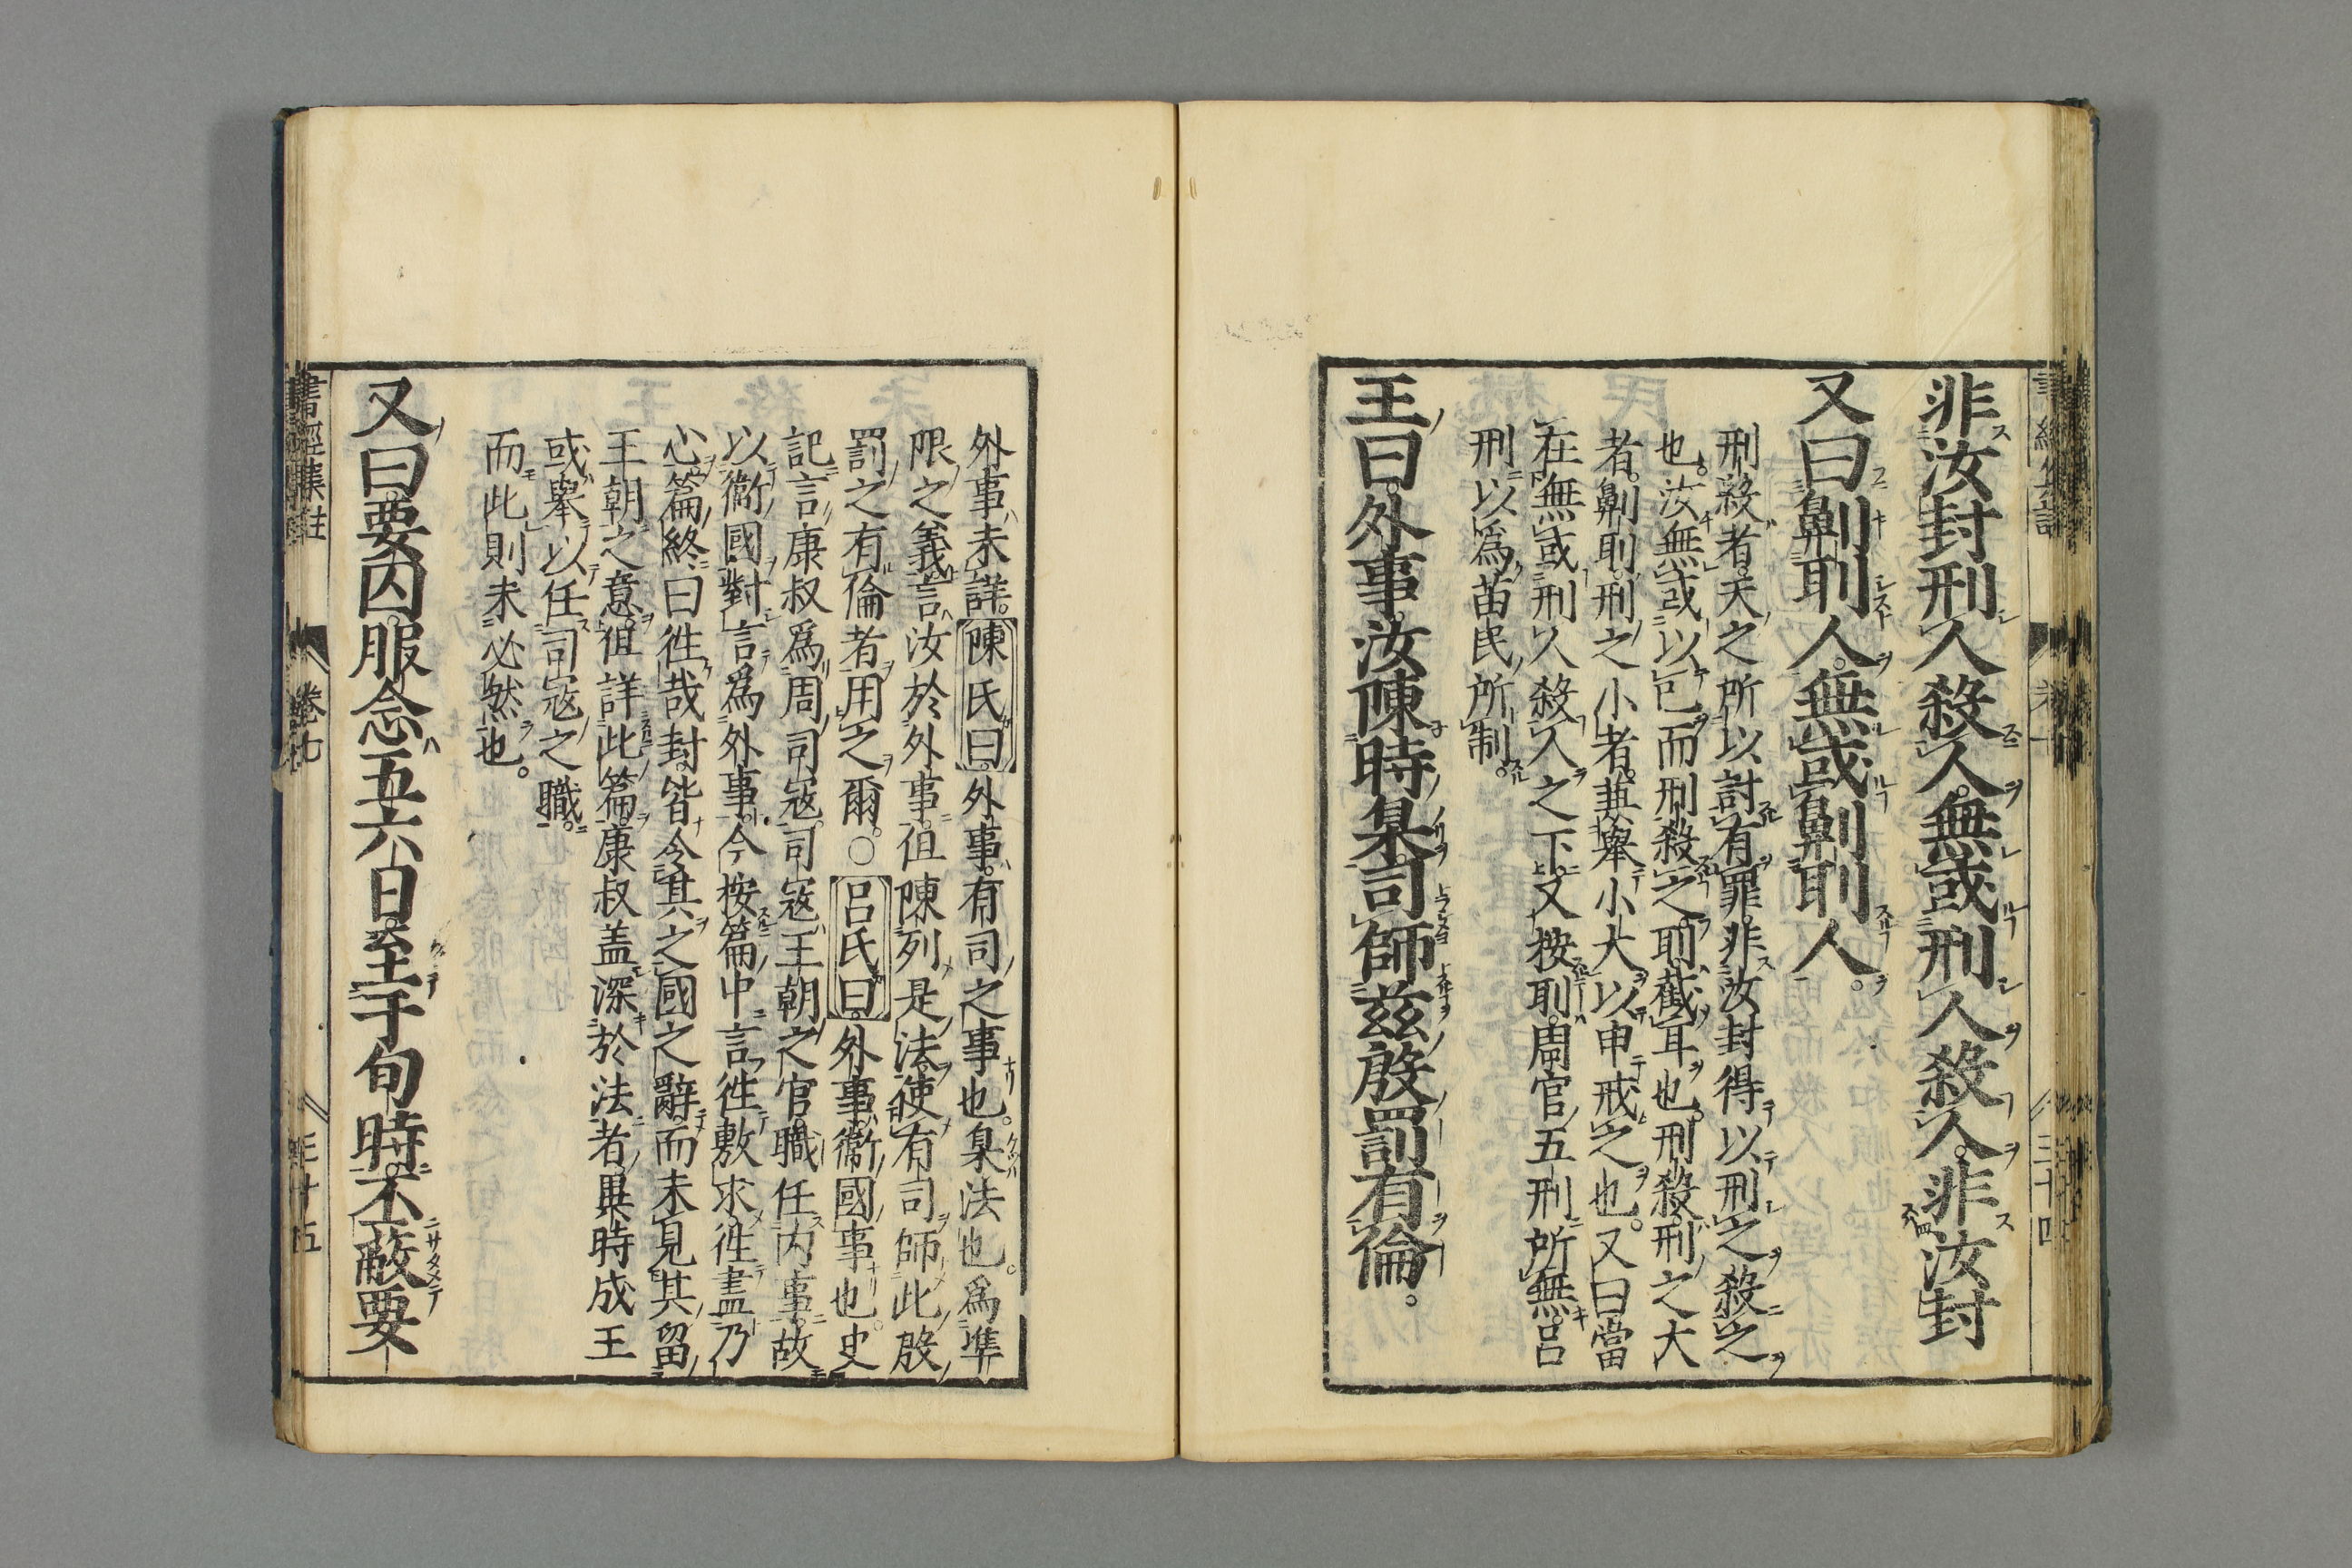 非汝封刑人殺人。無或刑人殺人。非汝封
又曰劓刵人。無或劓刵人。
刑殺者。天之所以討有罪。非汝封得以刑之殺之
也。汝無或以已而刑殺之。刵。截耳也。刑殺。刑之大
者。劓刵。刑之小者。兼舉小大。以申戒之也。又曰當
在無或刑人殺人之下。又按刵。周官五刑所無。呂
刑以爲苗民所制。
王曰。外事。汝陳時臬。司師茲殷罰有倫。
外事未詳。陳氏曰。外事。有司之事也。臬。法也。爲準
限之義。言汝於外事。但陳列是法。使有司師此殷
罰之有倫者用之爾。○呂氏曰。外事。衞國事也。史
記言康叔爲周司寇。司寇王朝之官。職任内事。故
以衞國對言爲外事。今按篇中言徃敷求。徃盡乃
心。篇終曰徃哉封。皆令其之國之辭。而未見其留
王朝之意。但詳此篇。康叔盖深於法者。異時成王
或舉以任司寇之職。
而此則未必然也。
又曰。要囚。服念五六日。至于旬時。丕蔽要
書經集註 卷七 三十五